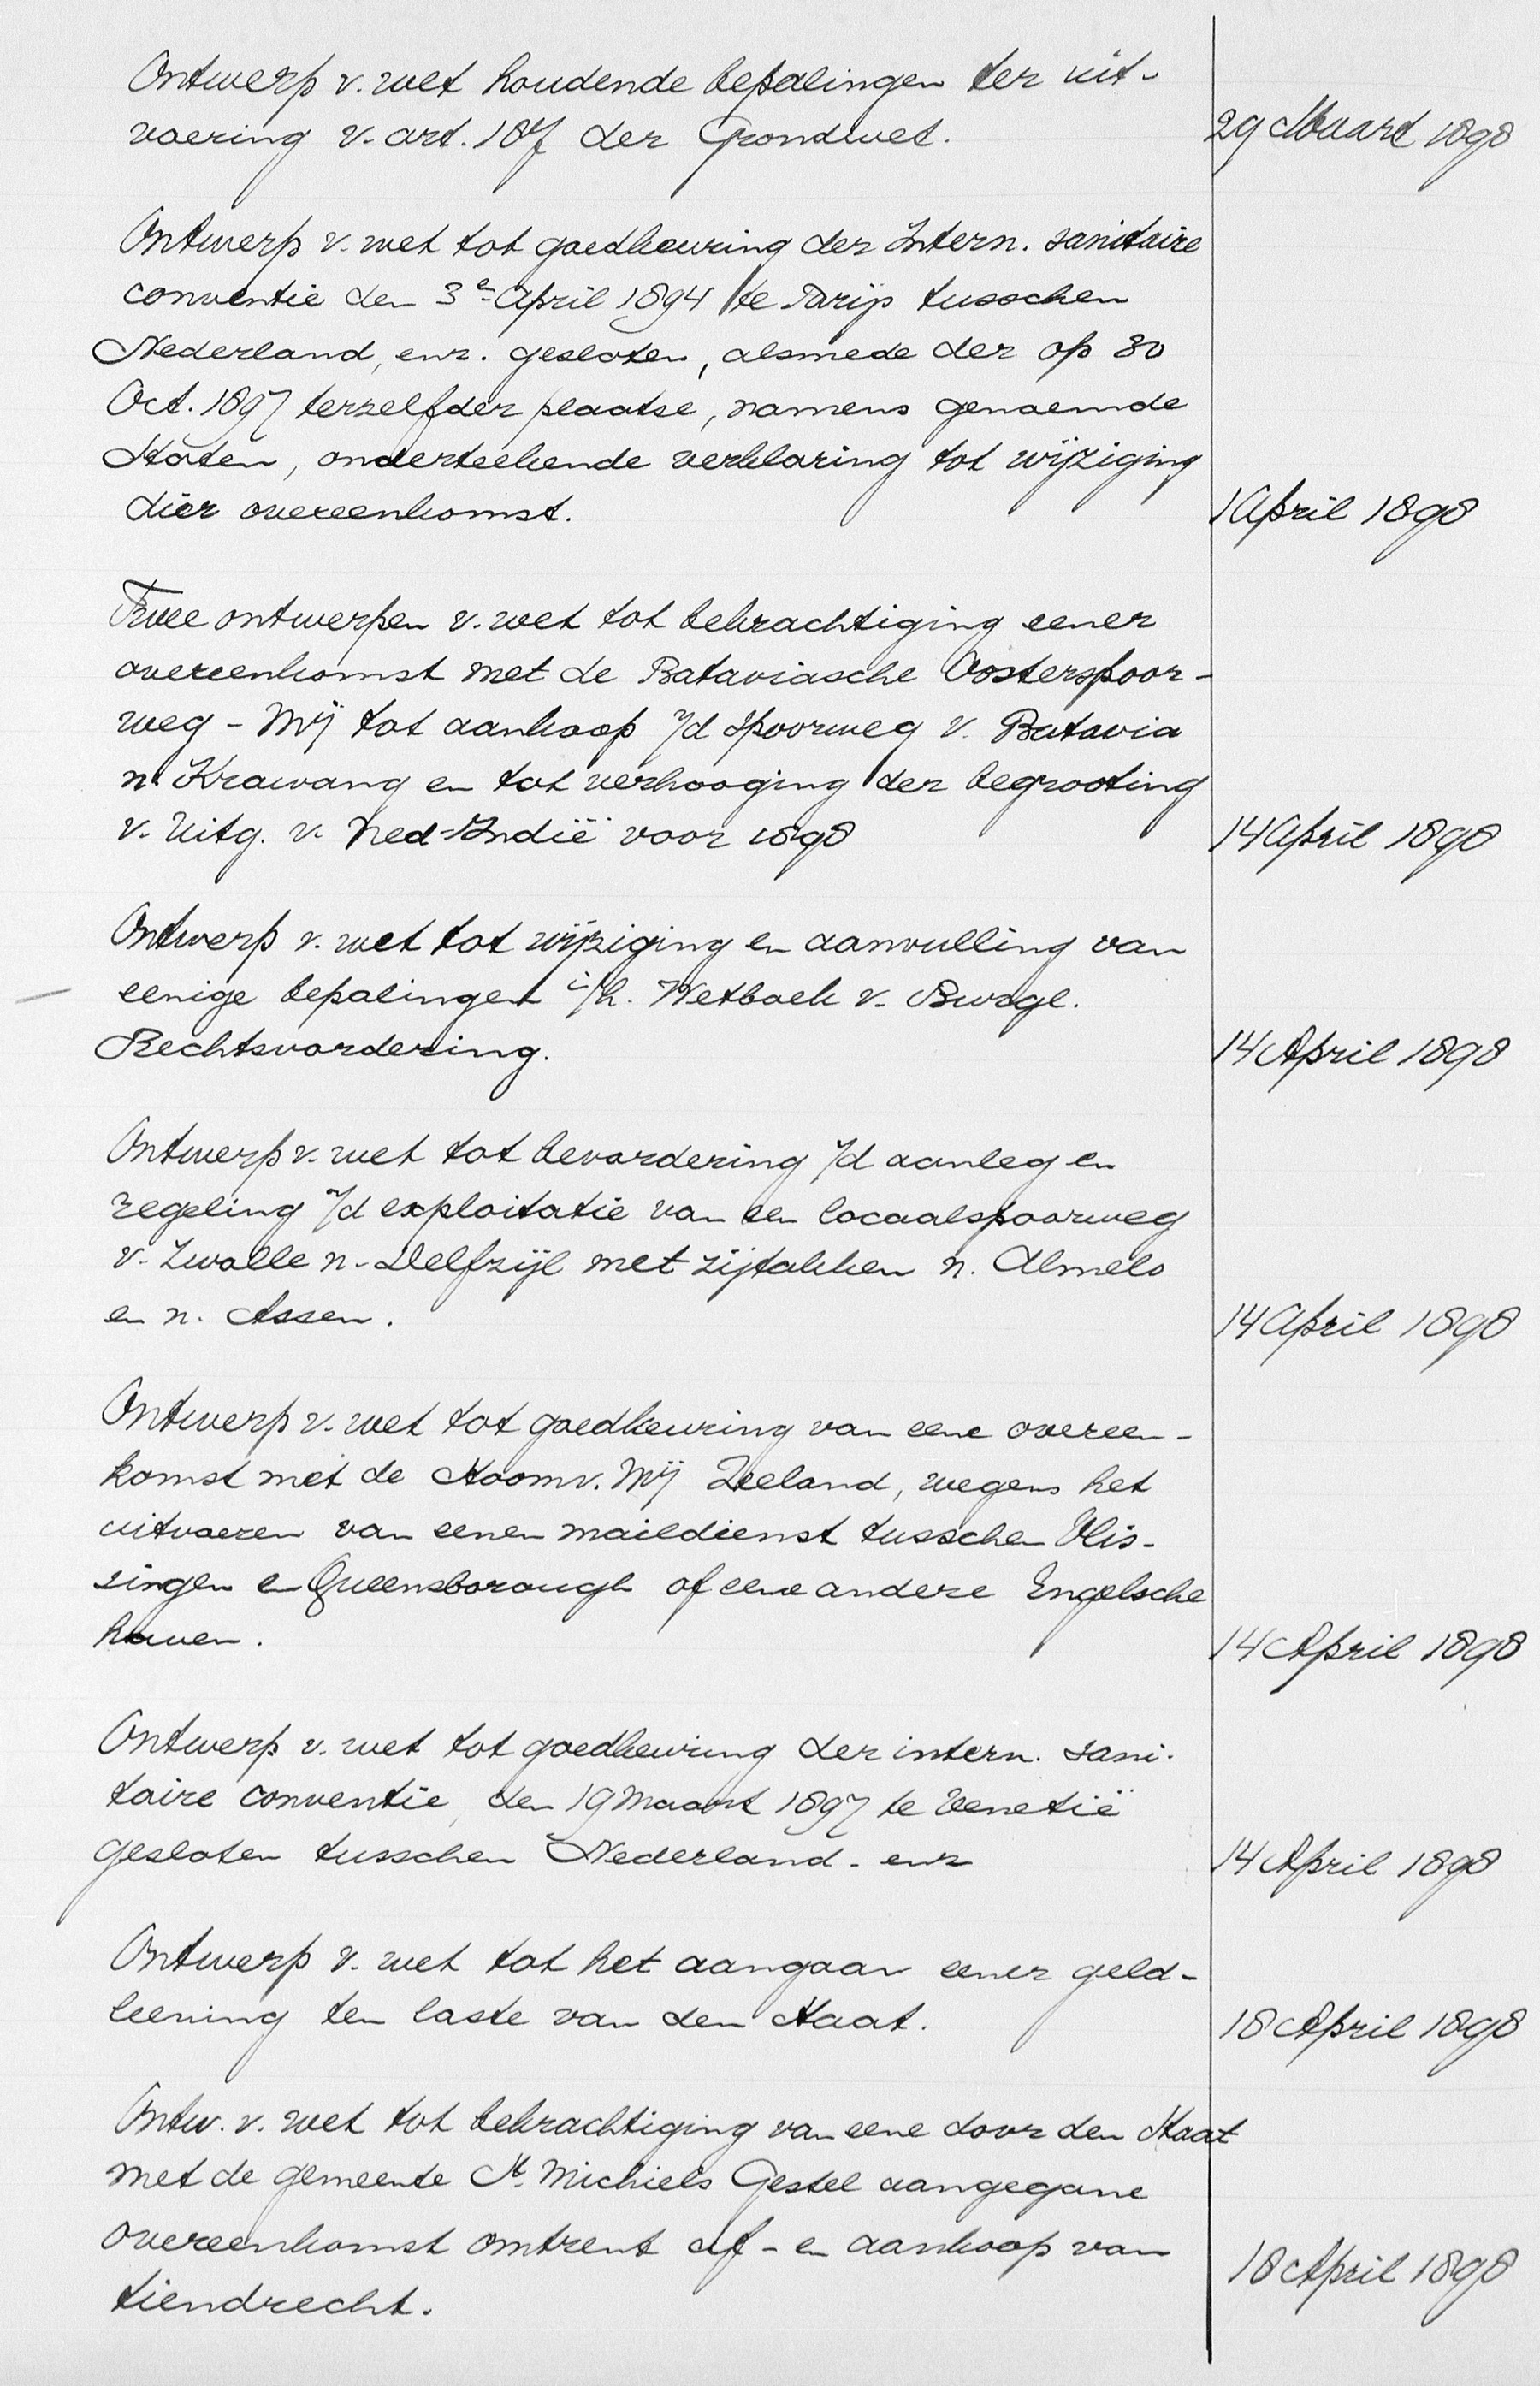 Ontwerp v. wet houdende bepalingen ter uit-
voering v. art. 187 der Grondwet.
29 Maart 1898
Ontwerp v. wet tot goedkeuring der Intern. sanitaire
conventie den 3e April 1894 te Parijs tusschen
Nederland, enz. gesloten, alsmede der op 30
Oct. 1897 terzelfder plaatse, namens genoemde
Staten, onderteekende verklaring tot wijziging
dier overeenkomst.
1 April 1898
Twee ontwerpen v. wet tot bekrachtiging eener
overeenkomst met de Bataviasche Oosterspoor-
weg - Mij tot aankoop v/d spoorweg v. Batavia
n. Krawang en tot verhooging der begrooting
v. Uitg. v. Ned-Indië voor 1898
14 April 1898
Ontwerp v. wet tot wijziging en aanvulling van
eenige bepalingen i/h. Wetboek v. Burgl.
Rechtsvordering.
14 April 1898
Ontwerp v. wet tot bevordering v/d aanleg en
regeling v/d exploitatie van een locaalspoorweg
v. Zwolle n. Delfzijl met zijtakken n. Almelo
en n. Assen.
14 April 1898
Ontwerp v. wet tot goedkeuring van eene overeen-
komst met de Stoomv. Mij Zeeland, wegens het
uitvoeren van eenen maildienst tusschen Vlis-
singen en Queensborough of eene andere Engelsche
haven.
14 April 1898
Ontwerp v. wet tot goedkeuring der intern. sani-
taire conventie, den 19 Maart 1897 te Venetië
gesloten tusschen Nederland - enz
14 April 1898
Ontwerp v. wet tot het aangaan eener geld-
leening ten laste van den Staat.
18 April 1898
Ontw. v. wet tot bekrachtiging van eene door den Staat
met de gemeente St. Michiels Gestel aangegane
overeenkomst omtrent af- en aankoop van
tiendrecht.
18 April 1898